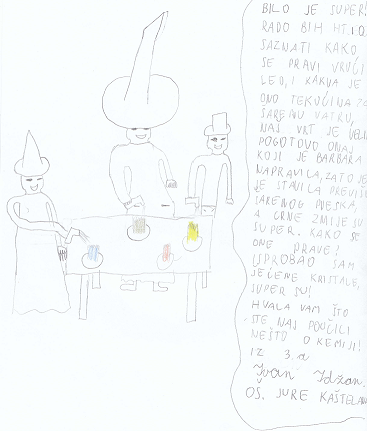 BILO JE SUPER!
RADO BIH HT.
SAZNATI KAKO
SE PRAVI VRUĆI
LED, I KAKVA JE
ONO TEKUĆINA ZA
ŠARENU VATRU,
NAŠ VRT JE
POGOTOVO ONAJ
KOJI JE BARBARA
NAPRAVILA, ZATO JE
JE STAVILA PREVIŠE
ŠARENOG PIJESKA,
A CRNE ZMIJE SU
SUPER. KAKO SE
ONE PRAVE!
ISPROBAO SAM
LEĆENE KRISTALE,
SUPER SU!
HVALA VAM ŠTO
STE NAS POUČILI
NEŠTO O KEMIJI!
IZ 3.a
Ivan Idžan.
OŠ. JURE KAŠTELAN